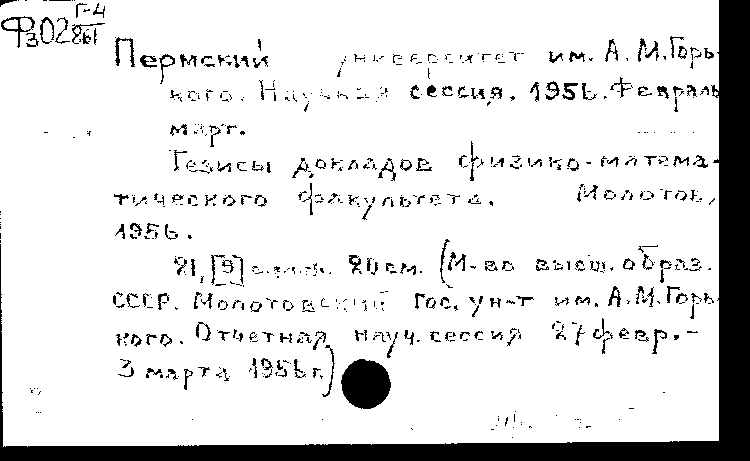 Г-4
Ф302 861
Пермский университет им. А. М. Горь-
кого. Научная сессия. 1956. Февраль
март.
Тезисы докладов физико-матема-
тического факультета. Молотов,
1956.
21, [9] 20 см. (М-во высш. образ.
СССР. Молотовский гос. ун-т им. А. М. Горь-
кого. Отчетная науч. сессия 27 февр. -
3 марта 1956 г.)